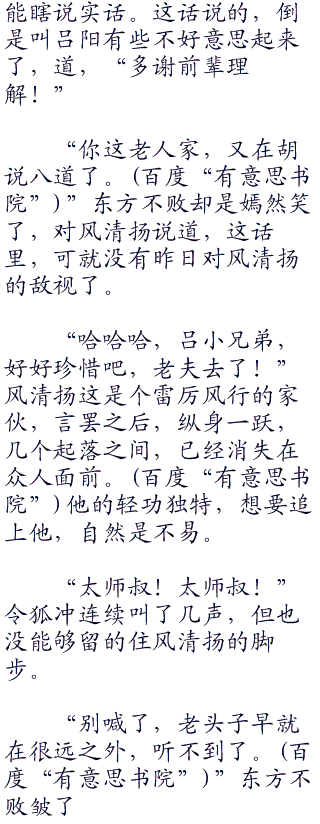 能瞎说实话。这话说的，倒
是叫吕阳有些不好意思起来
了，道，“多谢前辈理
解！”
“你这老人家，又在胡
说八道了。(百度“有意思书
院”)”东方不败却是嫣然笑
了，对风清扬说道，这话
里，可就没有昨日对风清扬
的敌视了。
“哈哈哈，吕小兄弟，
好好珍惜吧，老夫去了！”
风清扬这是个雷厉风行的家
伙，言罢之后，纵身一跃，
几个起落之间，已经消失在
众人面前。(百度“有意思书
院”)他的轻功独特，想要追
上他，自然是不易。
“太师叔！太师叔！”
令狐冲连续叫了几声，但也
没能够留的住风清扬的脚
步。
“别喊了，老头子早就
在很远之外，听不到了。(百
度“有意思书院”)”东方不
败皱了